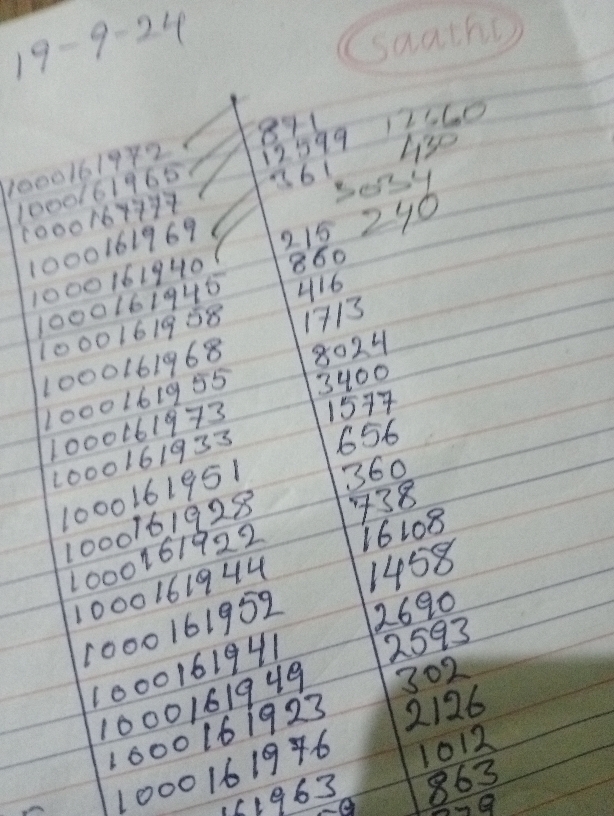 19-9-24
Saathi
1000161972 871
1000161965 12599
1000167777 361 430
1000161969 3034
1000161940 215 240
1000161945 860
1000161958 416
1000161968 1713
1000161955 8024
1000161973 3400
1000161933 1577
1000161951 656
1000161928 360
1000161922 738
1000161944 16108
1000161952 1458
1000161941 2690
1000161949 2593
1000161923 302
1000161976 2126
161963 1012
863